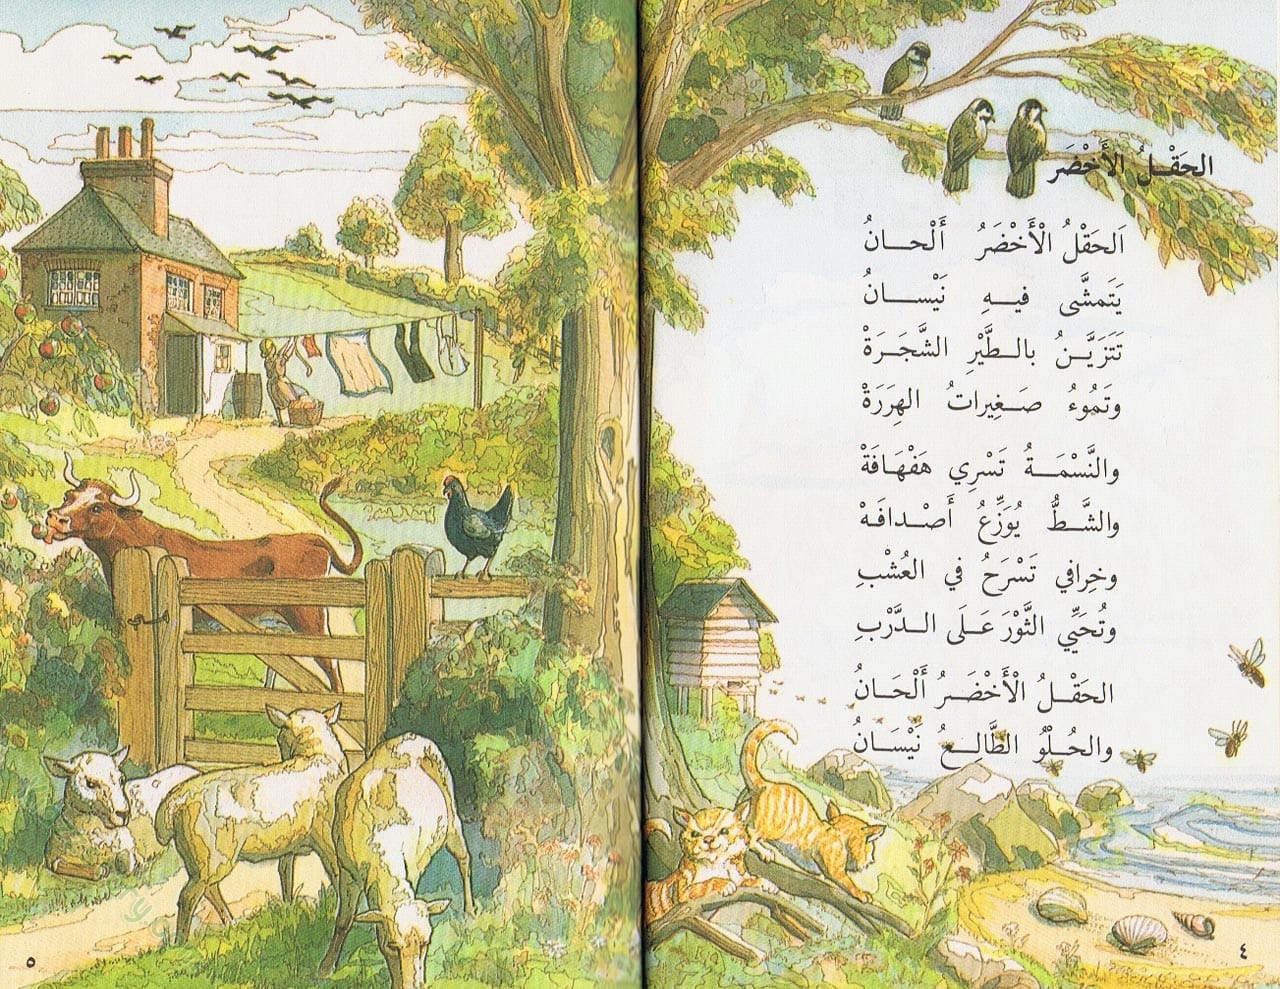 الحَقْـلُ الأَخْضَر
اَلحَقْلُ الْأَخْضَرُ أَلْحـانُ
يَتَمشَّى فيـهِ نَيْسـانُ
تَتَزَيَّـنُ بالـطَّيْرِ الشَّجَـرَةْ
وتَمُوءُ صَـغِيراتُ الهِرَرَةْ
والنَّسْمَـةُ تَسْرِي هَفْهَافَةْ
والشَّـطُّ يُوَزِّعُ أَصْـدافَـهْ
وخِرافي تَسْرَحُ في العُشْبِ
وتُحَيِّي الثَّوْرَ عَـلَى الـدَّرْبِ
الحَقْـلُ الْأَخْضَـرُ أَلْحَـانُ
والحُـلْوُ الطَّالِـعُ نَيْسَـانُ
٤
٥